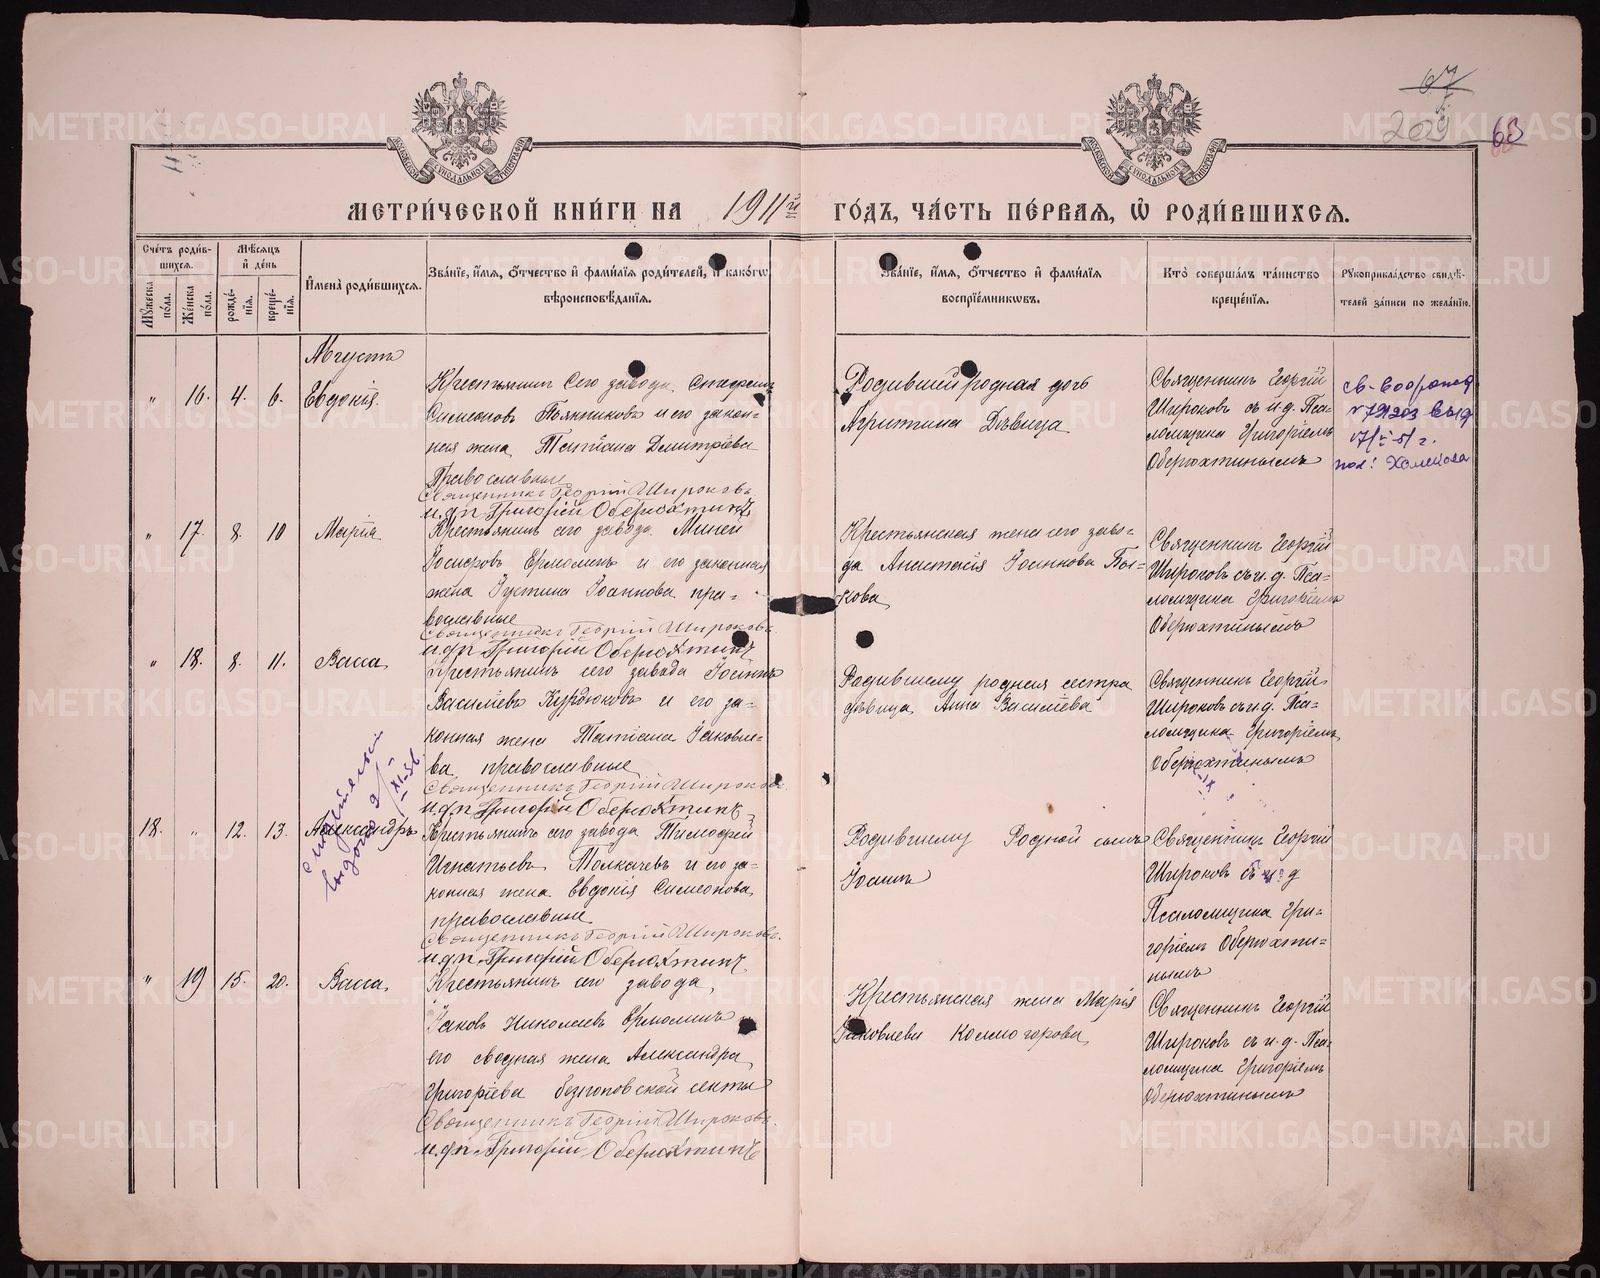 67
209
63
МОСКОВСКОЙ СѴНОДАЛЬНОЙ ТИПОГРАФІИ
МОСКОВСКОЙ СѴНОДАЛЬНОЙ ТИПОГРАФІИ
МЕТРИ́ЧЕСКОЙ КНИ́ГИ НА 1911й ГО́ДЪ, ЧА́СТЬ ПЕ́РВАЯ, Ѿ РОДИ́ВШИХСЯ.
Сче́тъ роди́в-
шихся.
Мꙋ́жеска по́ла.
Же́нска по́ла.
Мѣ́сяцъ
и҆ де́нь
рожде́-
нїя.
креще́-
нїя.
И҆мена̀ роди́вшихся.
Зва́нїе, и҆́мя, ѻ҆́тчество и҆ фами́лїя роди́телей, и҆ како́гѡ
вѣроисповѣ́данїя.
Зва́нїе, и҆́мя, ѻ҆́тчество и҆ фами́лїя
воспрїе́мникѡвъ.
Кто̀ соверша́лъ та́инство
креще́нїя.
Рꙋкоприкла́дство свидѣ́-
телей за́писи по жела́нїю.
Августъ
" 16. 4. 6. Евдокія.
Крестьянинъ сего завода, Стефанъ
Симеоновъ Полятниковъ и его закон-
ная жена Татіана Дмитріева
Православные
Священникъ Георгій Широковъ
и.д.п. Григорій Оберюхтинъ
Родившей родная дочь
Агрипина Дѣвица
Священникъ Георгій
Широковъ съ и.д. Пса-
ломщика Григоріемъ
Оберюхтинымъ
св-во
выд
" 17. 8. 10 Марія
Крестьянинъ сего завода Миней
Іосифовъ Ермолинъ и его законная
жена Іустина Іоаннова пра-
вославные
Священникъ Георгій Широковъ
и.д.п. Григорій Оберюхтинъ
Крестьянская жена сего заво-
да Анастасія Іоаннова Бы-
кова
Священникъ Георгій
Широковъ съ и.д. Пса-
ломщика Григоріемъ
Оберюхтинымъ
" 18. 8. 11. Васса
Крестьянинъ сего завода Іоаннъ
Василіевъ Курдюковъ и его за-
конная жена Татіана Іаковле-
ва, православные
Священникъ Георгій Широковъ
и.д.п. Григорій Оберюхтинъ
Родившему родная сестра
дѣвица Анна Василіева
Священникъ Георгій
Широковъ съ и.д. Пса-
ломщика Григоріемъ
Оберюхтинымъ
18. " 12. 13. Александръ
Крестьянинъ сего завода Тимофей
Игнатьевъ Толкачевъ и его за-
конная жена Евдокія Симеонова,
православные
Священникъ Георгій Широковъ
и.д.п. Григорій Оберюхтинъ
Родившему Родной сынъ
Іоаннъ
Священникъ Георгій
Широковъ съ и.д
Псаломщика Гри-
горіемъ Оберюхти-
нымъ
" 19 15. 20. Васса
Крестьянинъ сего завода
Іаковъ Николаевъ Ермолинъ
его сводная жена Александра
Григоріева безпоповской секты
Священникъ Георгій Широковъ
и.д.п. Григорій Оберюхтинъ
Крестьянская жена Марія
Іаковлева Колмогорова
Священникъ Георгій
Широковъ съ и.д. Пса-
ломщика Григоріемъ
Оберюхтинымъ
METRIKI.GASO-URAL.RU